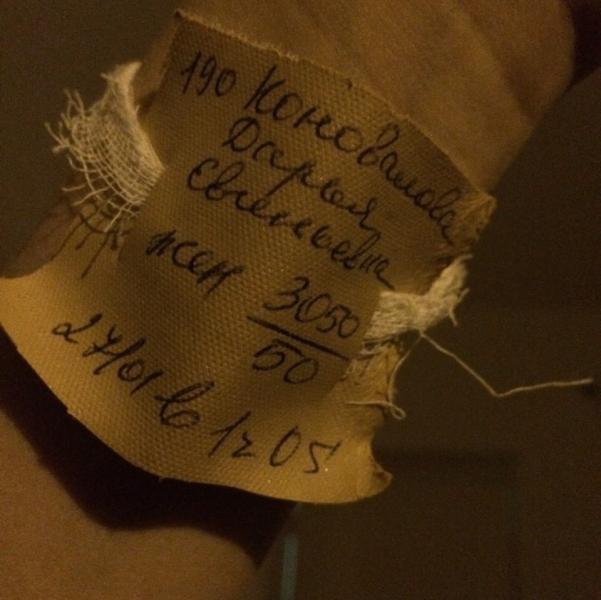 190 Коновалова
Дарья
Евгеньевна
жен 3050/50
27/01 в 1г 05